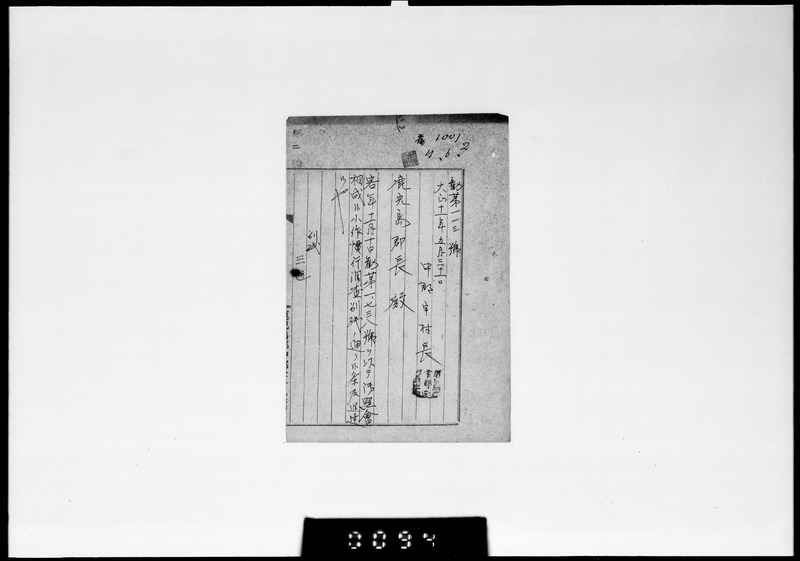 1001
11.6.2
勧第一一三號
大正十一年五月三十一日
中郡宇村長
鹿児島郡長殿
客年十一月十日勧第一、七三八號ヲ以テ御照會
相成候小作慣行調査別紙ノ通ニ候條及進達
候也
別紙
三通
0094